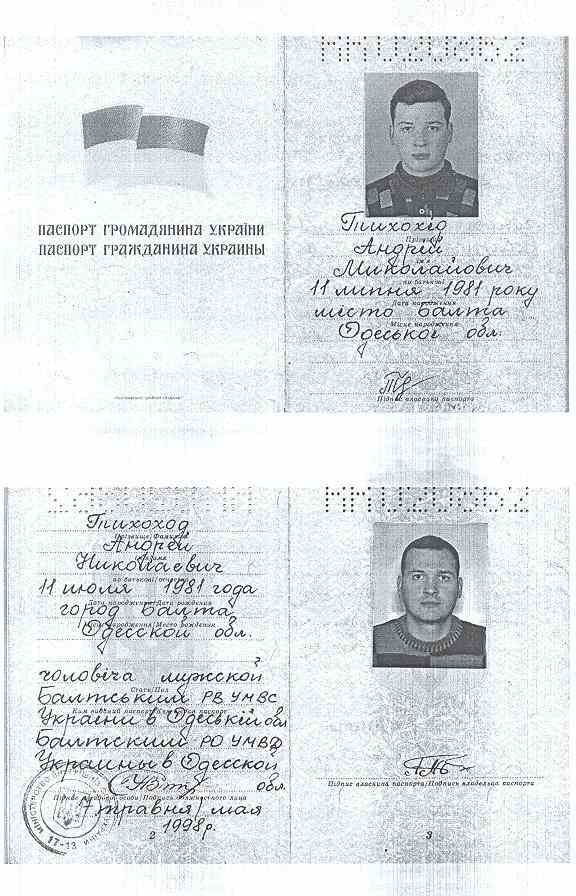 ПАСПОРТ ГРОМАДЯНИНА УКРАЇНИ
ПАСПОРТ ГРАЖДАНИНА УКРАИНЫ
Тихоход
Прізвище
Андрей
Ім'я
Миколайович
по батькові
11 липня 1981 року
Дата народження
місто Балта
Місце народження
Одеської обл.
Підпис власника паспорта
Тихоход
Прізвище/Фамилия
Андрей
Николаевич
по батькові/отчество
11 июля 1981 года
Дата народження/Дата рождения
город Балта
Місце народження/Место рождения
Одесской обл.
чоловіча мужской
Стать/Пол
Балтським РВ УМВС
Ким виданий паспорт/Кем выдан паспорт
України в Одеській обл
Балтским РО УМВД
Украины в Одесской
обл.
Підпис посадової особи/Подпись должностного лица
7 травня/мая
1998р.
17-13
2
Підпис власника паспорта/Подпись владельца паспорта
3